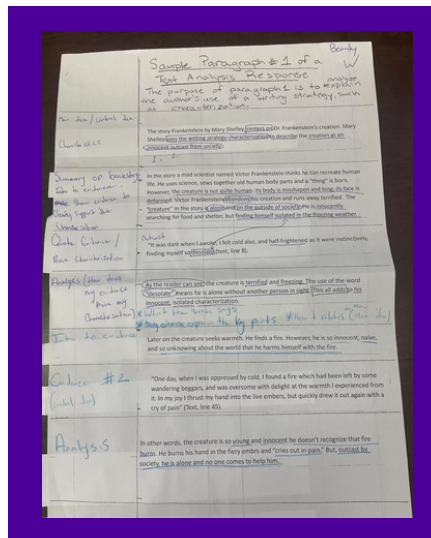 Beverly
W
Sample Paragraph #1 of a
Text Analysis Response
The purpose of paragraph 1 is to explain
one author's use of a writing strategy, such
as characterization.
Main idea / central idea
The story Frankenstein by Mary Shelley centers on Dr. Frankenstein's creation. Mary
Shelley uses the writing strategy characterization to describe the creation as an
innocent outcast from society.
Summary of backstory
In the story a mad scientist named Victor Frankenstein thinks he can recreate human
life. He uses science, sews together old human body parts and a "thing" is born.
However, the creature is not quite human, its body is misshapen and long, its face is
deformed. Victor Frankenstein abandons his creation and runs away terrified. The
"creature" in the story is alone and on the outside of society. He is innocently
searching for food and shelter, but finding himself isolated in the freezing weather.
Quote Evidence /
"It was dark when I awoke, I felt cold also, and half-frightened as it were instinctively,
finding myself so desolate (text, line 8).
Analysis
As the reader can see, the creature is terrified and freezing. The use of the word
"desolate" means he is alone without another person in sight. This all adds to his
innocent, isolated characterization.
Intro to evidence
Later on the creature seeks warmth. He finds a fire. However, he is so innocent, naive,
and so unknowing about the world that he harms himself with the fire.
Evidence #2
"One day, when I was oppressed by cold, I found a fire which had been left by some
wandering beggars, and was overcome with delight at the warmth I experienced from
it. In my joy I thrust my hand into the live embers, but quickly drew it out again with a
cry of pain" (Text, line 45).
Analysis
In other words, the creature is so young and innocent he doesn't recognize that fire
burns. He burns his hand in the fiery embers and "cries out in pain." But, outcast by
society, he is alone and no one comes to help him.